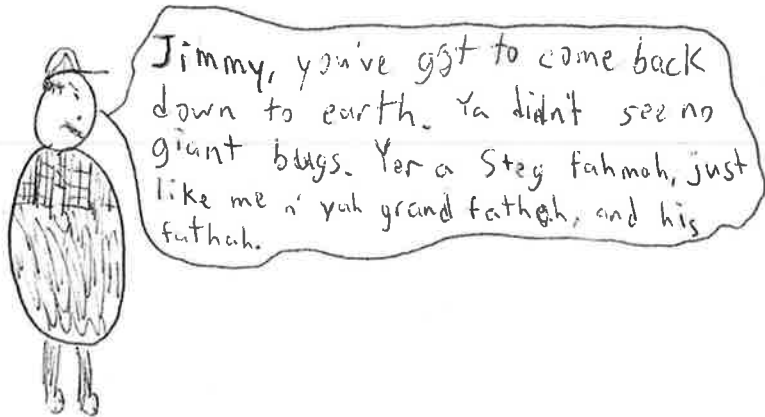 Jimmy, you've got to come back
down to earth. Ya didn't see no
giant bugs. Yer a Steg fahmah, just
like me n' yah grand fathah, and his
fathah.